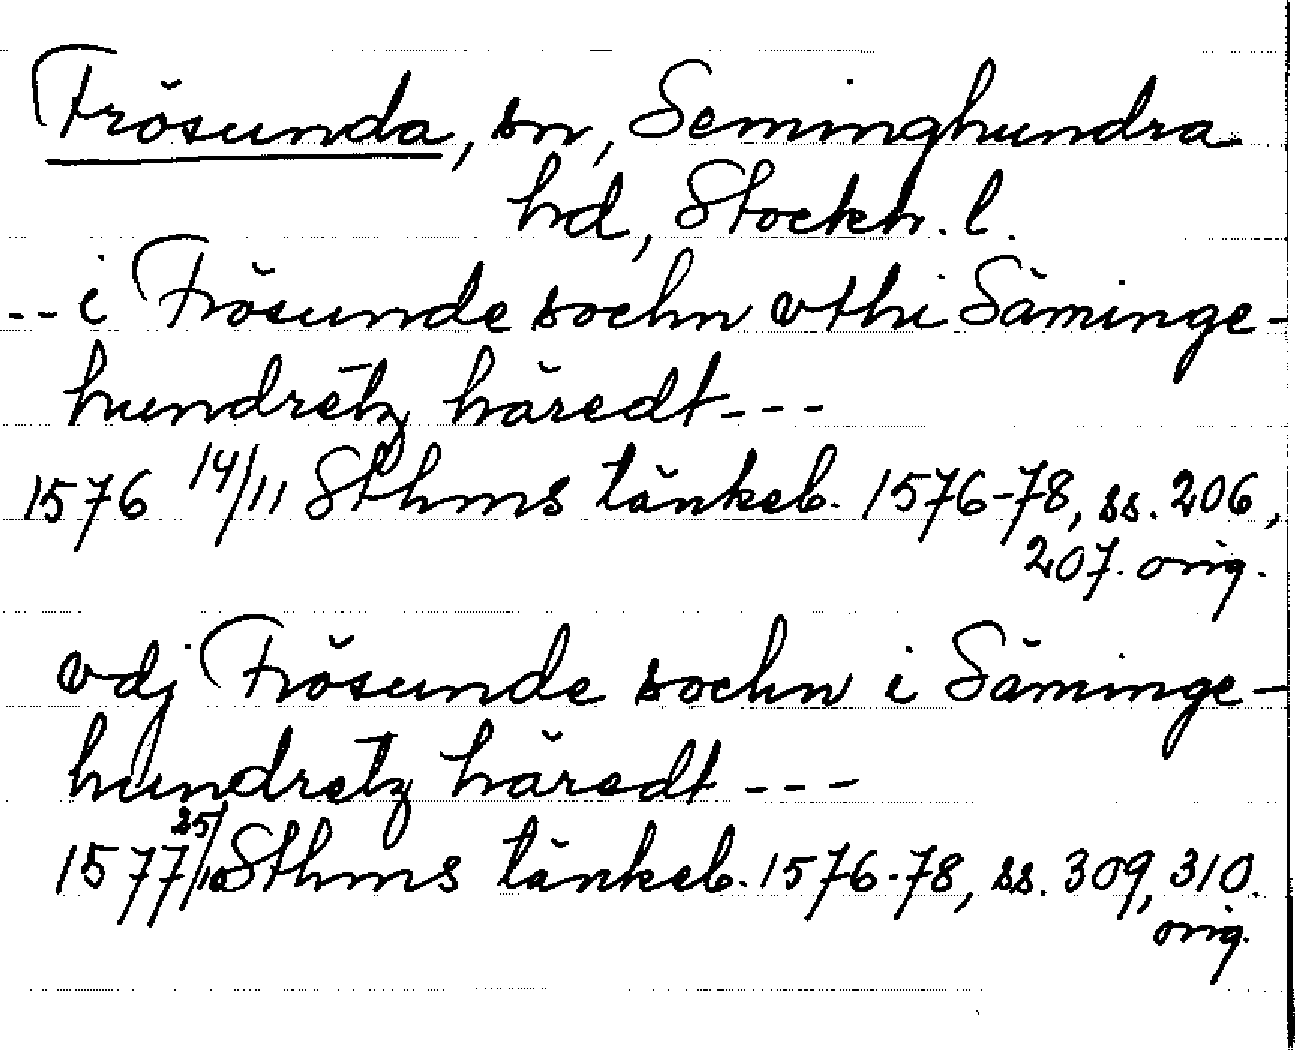 Frösunda, sn, Seminghundra
hd, Stockh. l.
-- i Frösunde sochn vthi Säminge-
hundretz häredt ---
1576 14/11 Sthms tänkeb. 1576-78, ss. 206,
207. orig.
vdj Frösunde sochn i Säminge-
hundretz häredt ---
1577 25/10 Sthms tänkeb. 1576-78, ss. 309, 310.
orig.